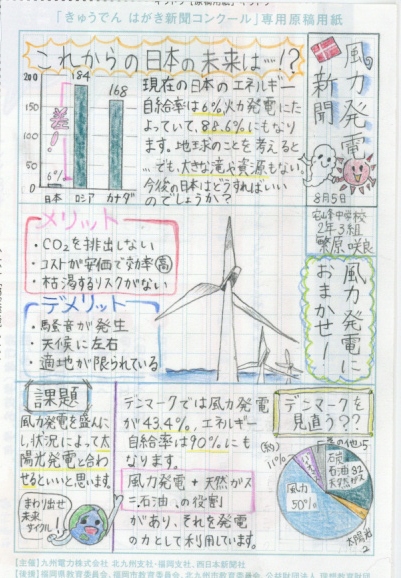 「きゅうでん はがき新聞コンクール」専用原稿用紙
風力発電新聞
8月5日
2年3組
これからの日本の未来は…!?
200
150
100
50
0
184
168
6%
差!
日本 ロシア カナダ
現在の日本のエネルギー
自給率は6%。火力発電にた
よっていて、88.6%にもなり
ます。地球のことを考えると
…でも、大きな滝や資源もない。
今後の日本はどうすればいい
のでしょうか?
風力発電に
おまかせ!
メリット
・CO2を排出しない
・コストが安価で効率高
・枯渇するリスクがない
デメリット
・騒音が発生
・天候に左右
・適地が限られている
課題
風力発電を盛んに
し、状況によって太
陽光発電と合わ
せるといいと思います。
まわり出せ
未来
サイクル!
デンマークでは風力発電
が43.4%。エネルギー
自給率は90%にも
なります。
風力発電+天然がス
=石油の役割
があり、それを発電
の力として利用しています。
デンマークを
見直う??
その他5
11%
石炭
石油 32
天然がス
風力
50%
太陽光
2
【主催】九州電力株式会社 北九州支社・福岡支社、西日本新聞社